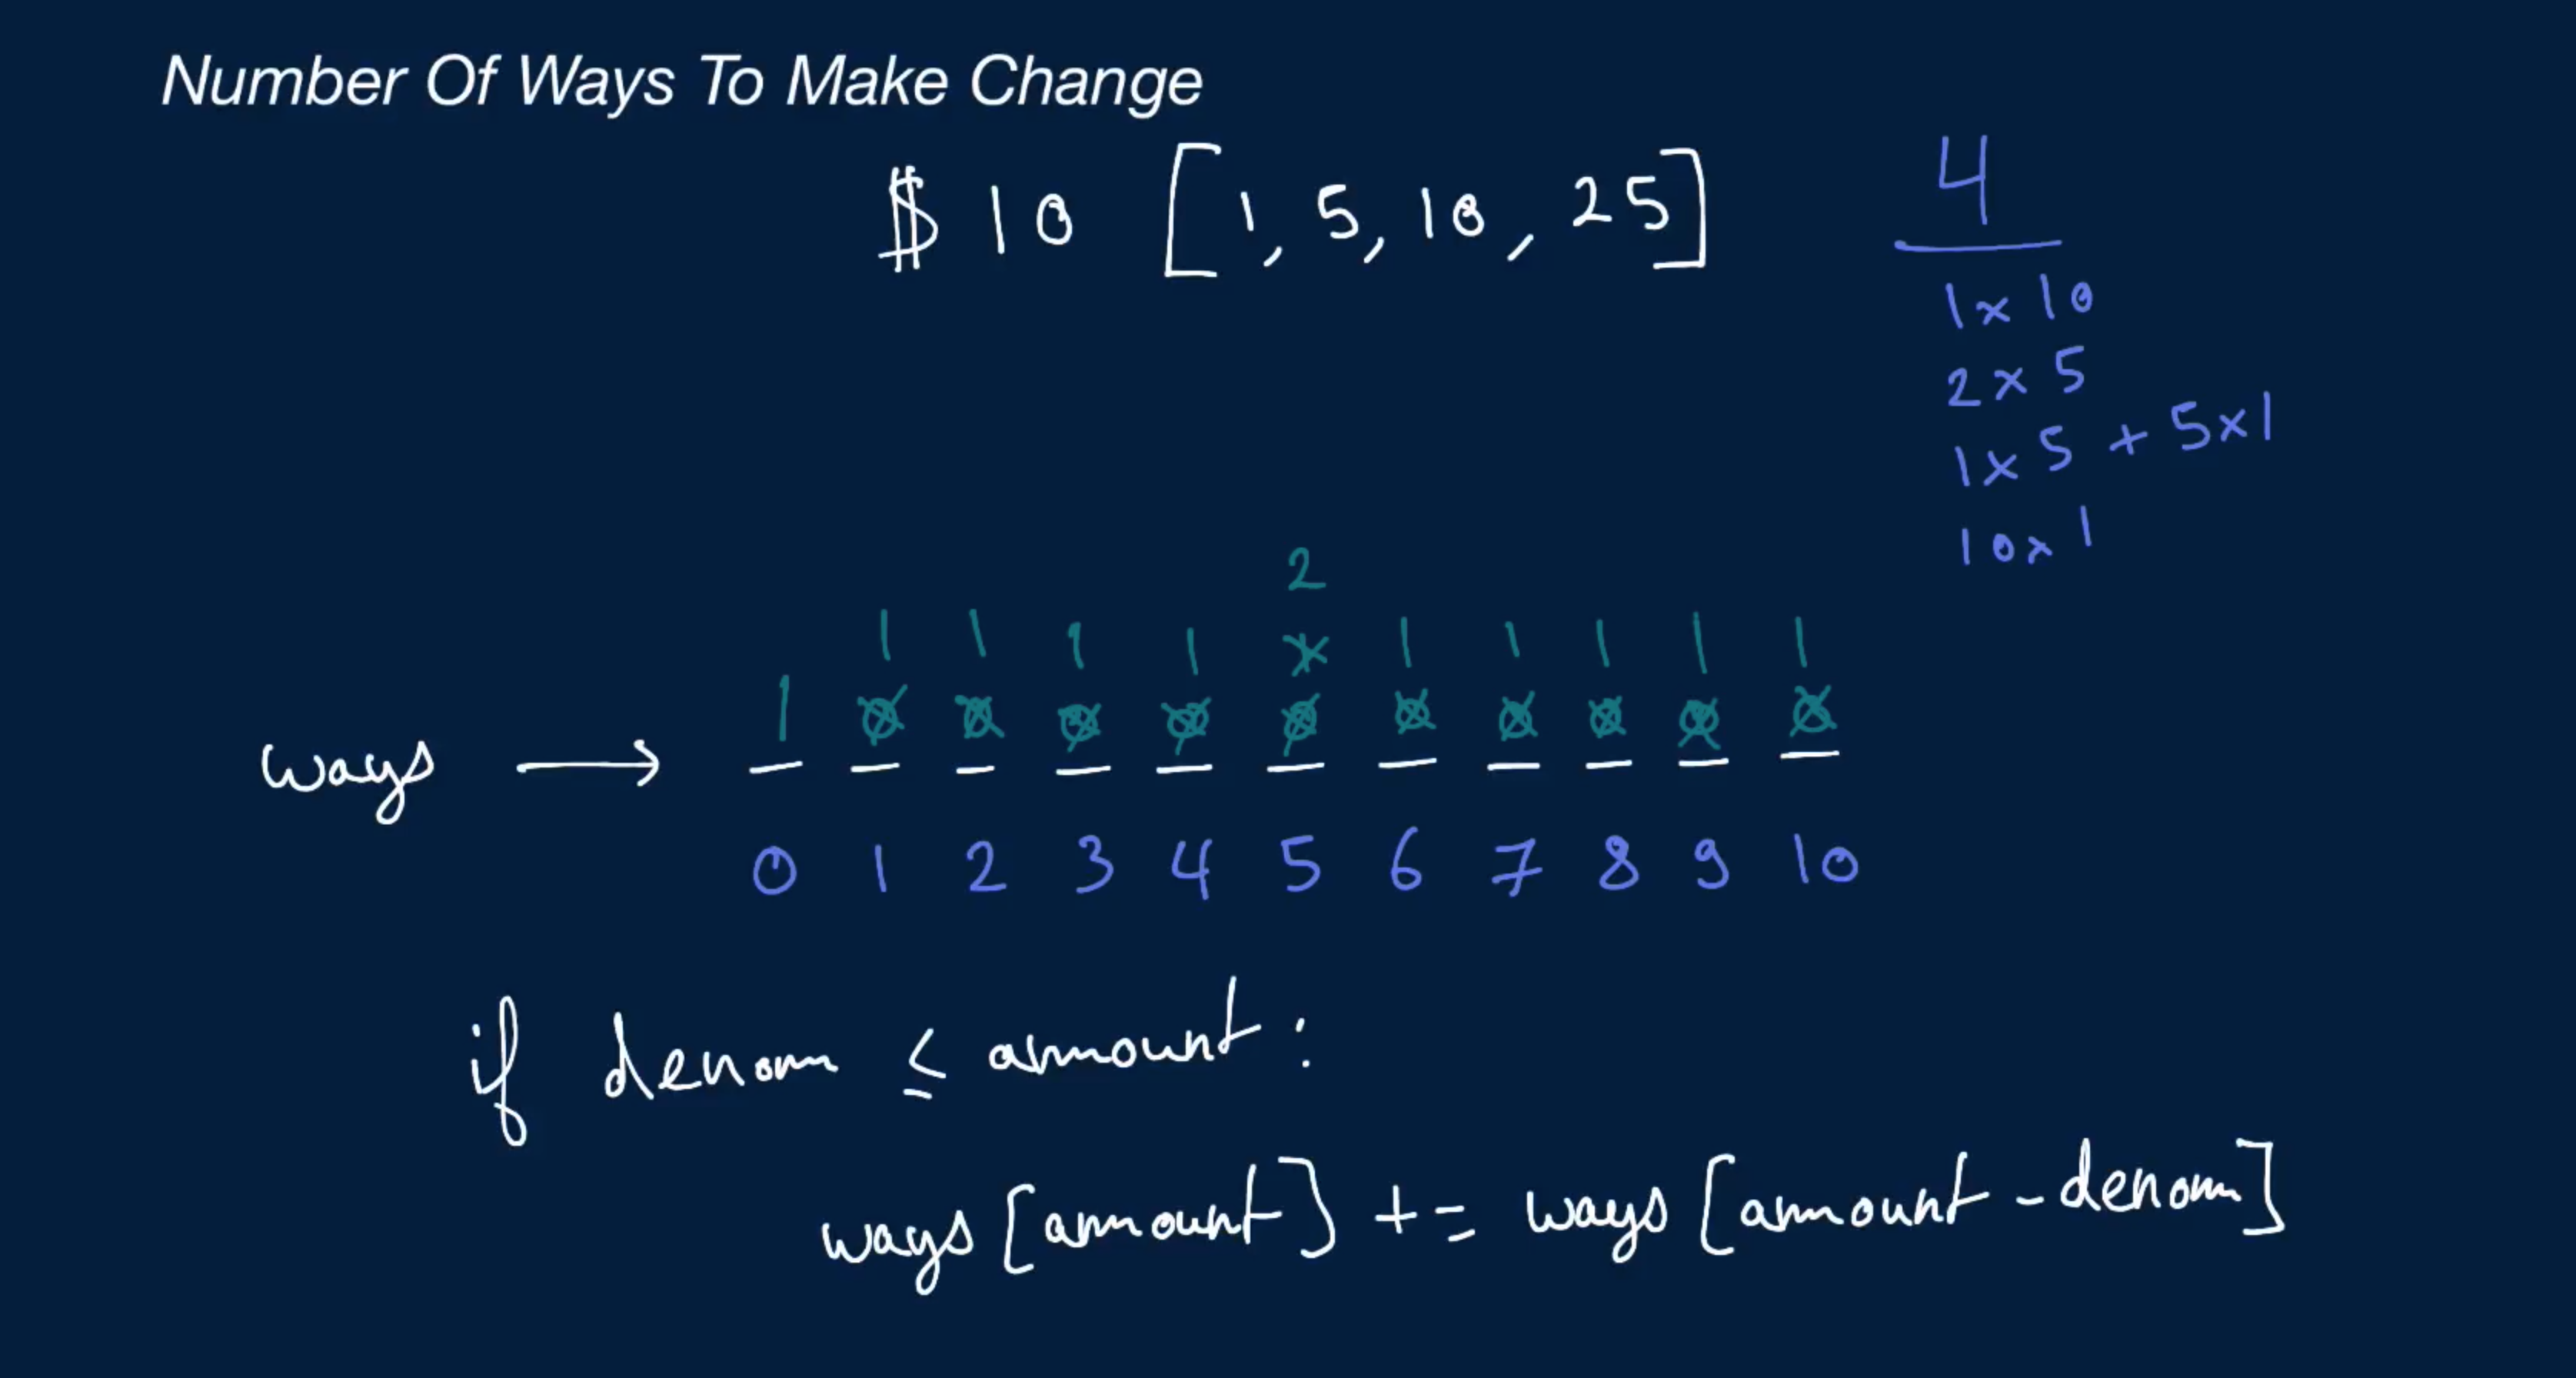 Number Of Ways To Make Change
$ 10 [1, 5, 10, 25]
4
1 x 10
2 x 5
1 x 5 + 5 x 1
10 x 1
2
1 1 1 1 1 1 1 1 1 1
1 0 0 0 0 0 0 0 0 0 0
ways → _ _ _ _ _ _ _ _ _ _ _
0 1 2 3 4 5 6 7 8 9 10
if denom ≤ amount:
ways [amount] += ways [amount - denom]